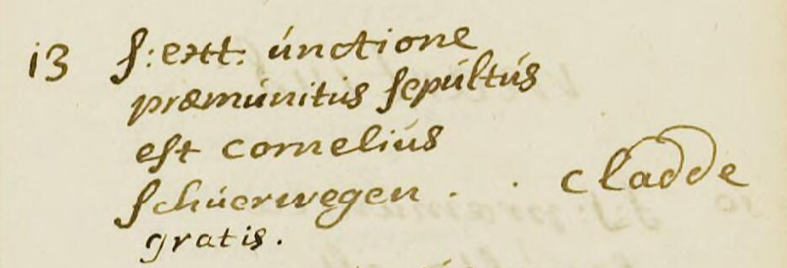 13 s: ext: únctione
præmúnitús sepúltús
est corneliús
schúerwegen . . cladde
gratis.